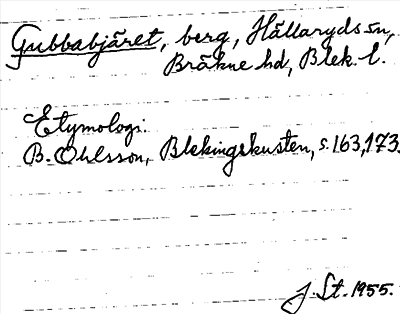 Gubbabjäret, berg, Hällaryds sn,
Bräkne hd, Blek. l.
Etymologi.
B. Ohlsson, Blekingekusten, s. 163, 173.
J. St. 1955.